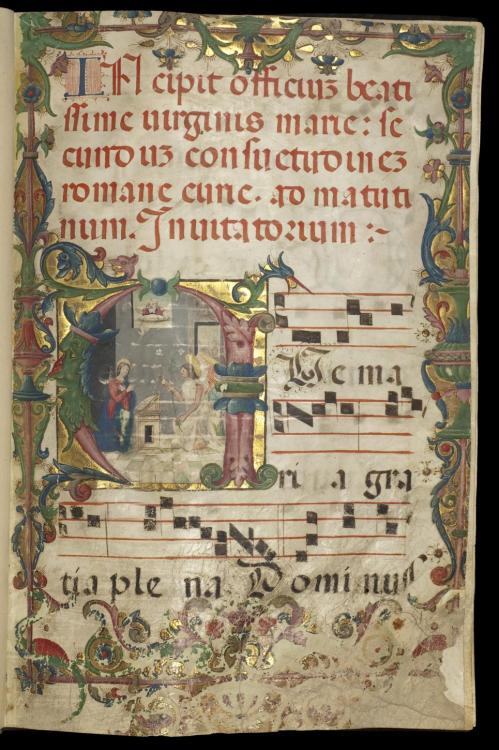 INcipit officiuʒ beati
ssime uirginis marie: se
cunduʒ consuetudineʒ
romane curie. ad matuti
num. Inuitatorium :~
AUe ma
ri a gra
tia ple na Dominus